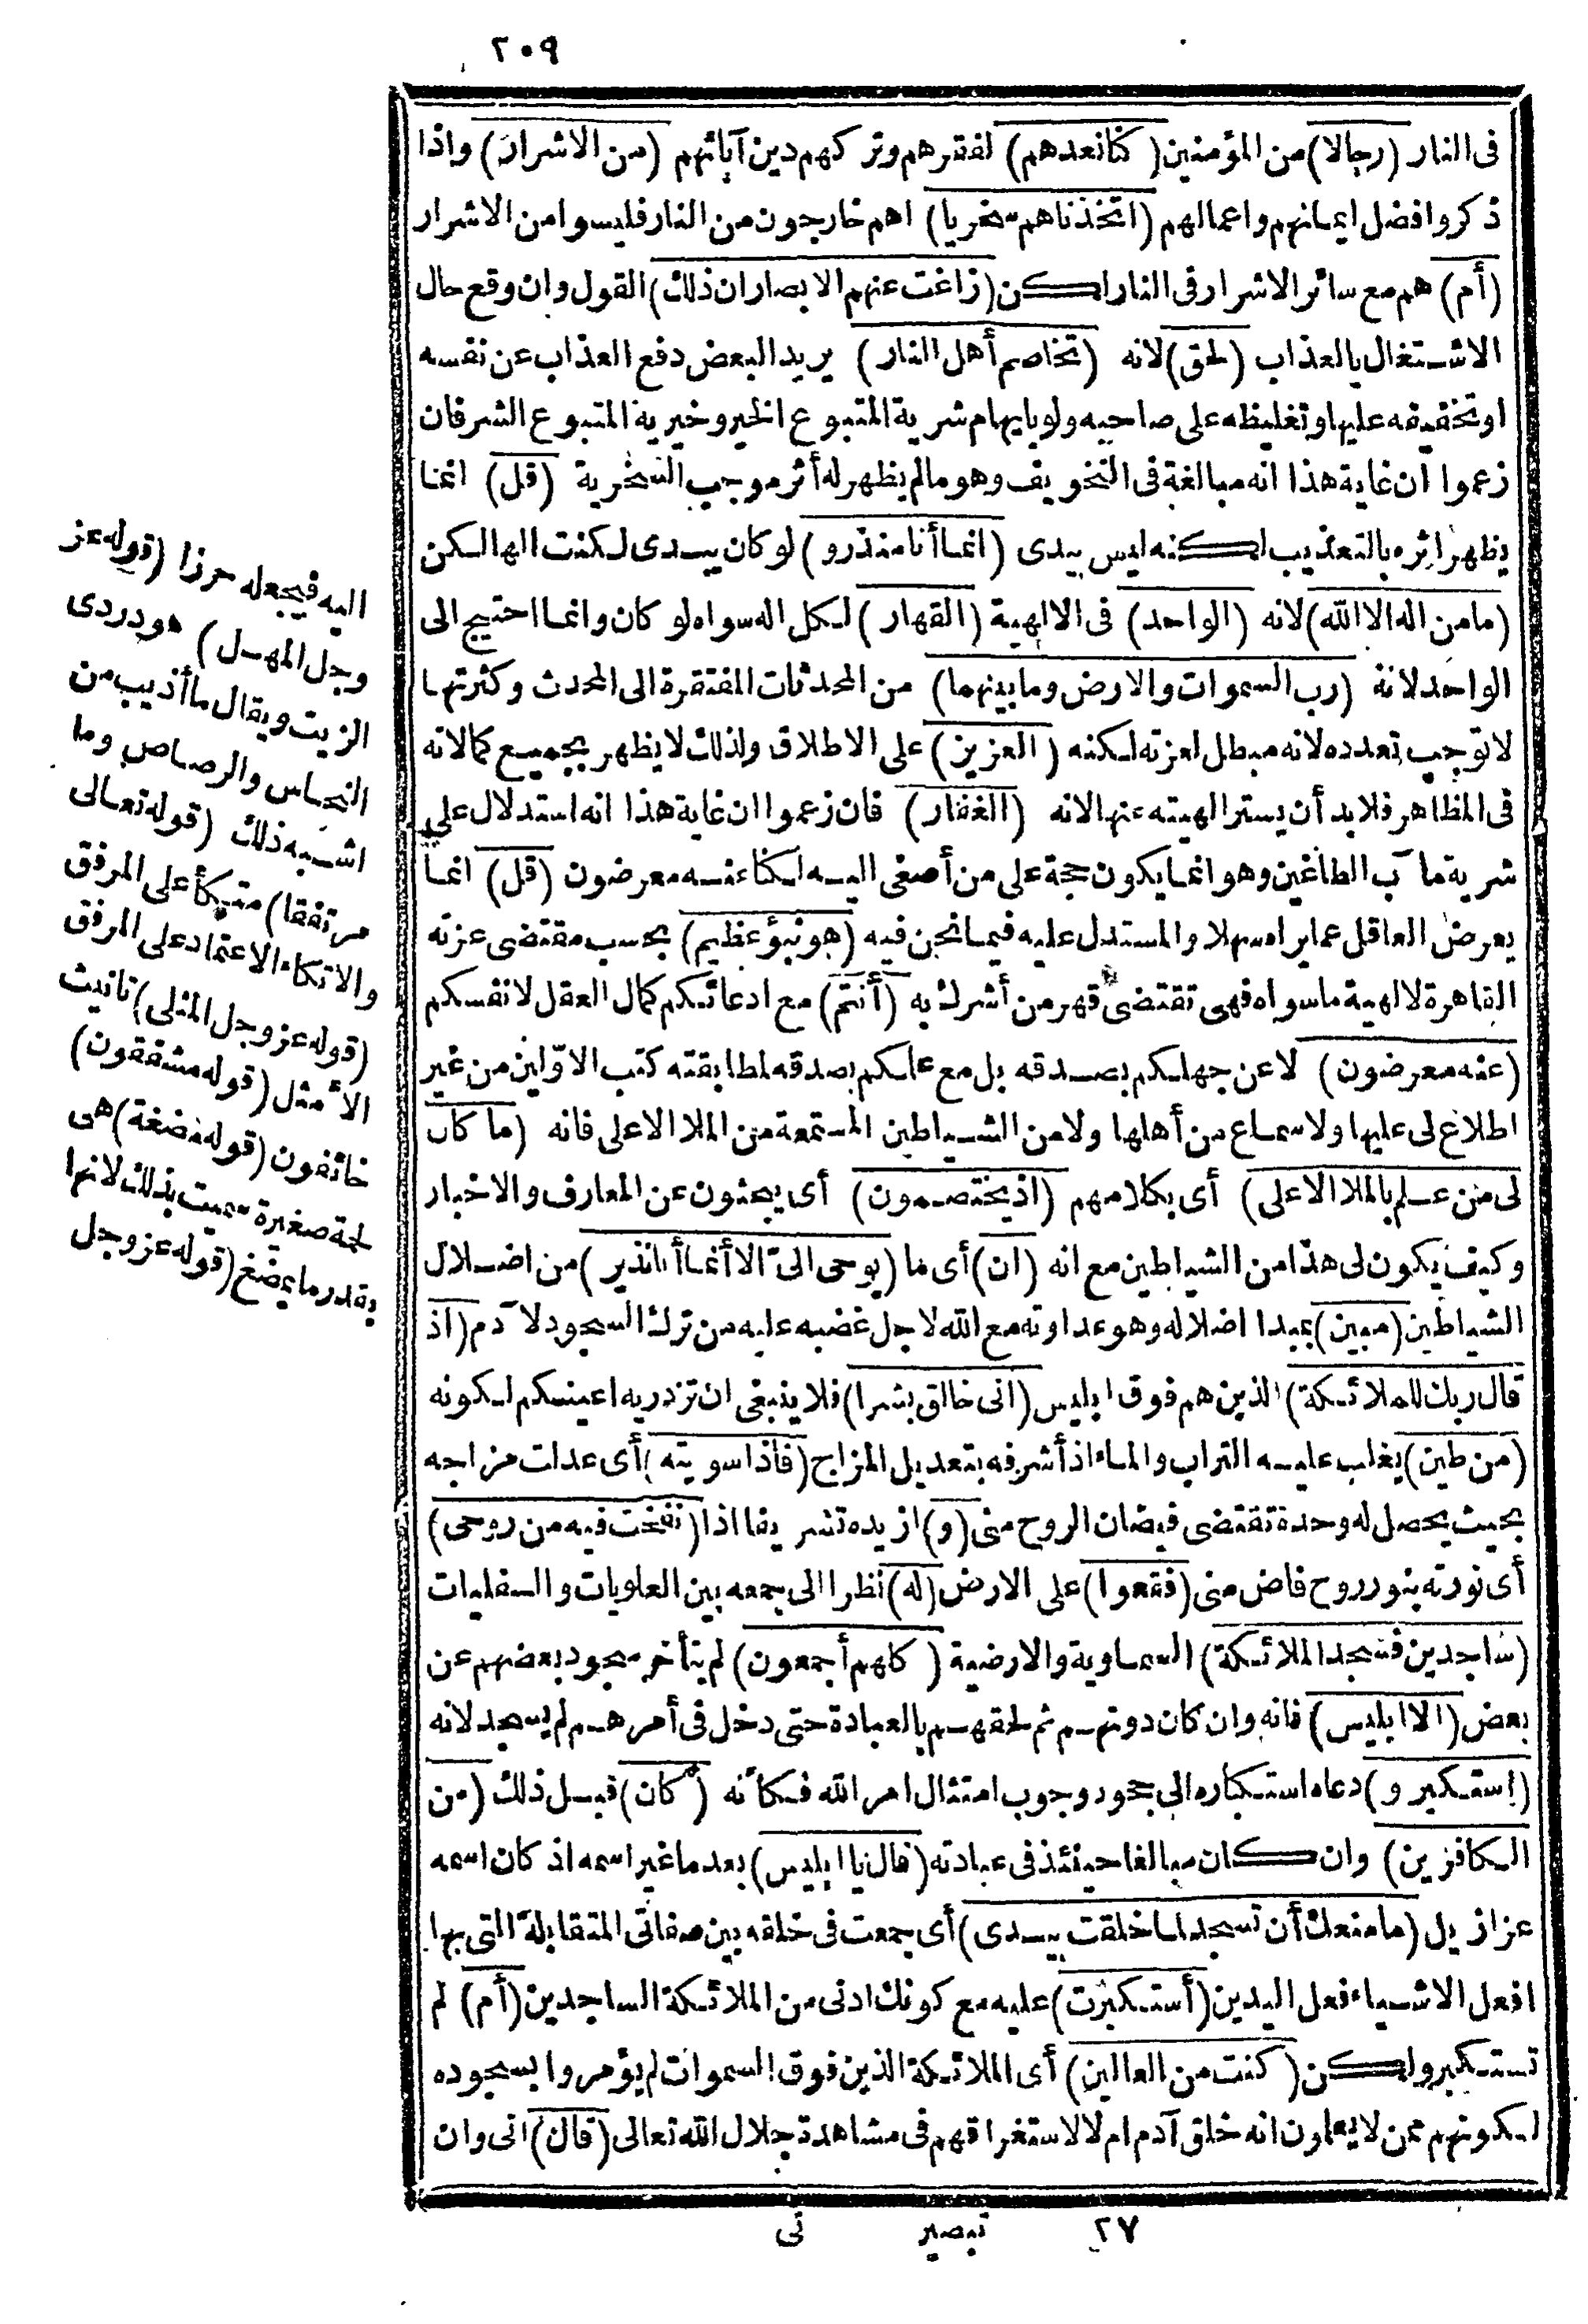 ٢٠٩
فى النار (رجالا) من المؤمنين (كنا نعدهم) لفقرهم وتركهم دين آبائهم (من الاشرار) واذا
ذكروا فضل ايمانهم واعمالهم (اتخذناهم سخريا) اهم خارجون من النار فليسوا من الاشرار
(أم) هم مع سائر الاشرار فى النار لكن (زاغت عنهم الابصار ان ذلك) القول وان وقع حال
الاشتغال بالعذاب (لحق) لانه (تخاصم أهل النار) يريد البعض دفع العذاب عن نفسه
او تخفيفه عليها وتغليظه على صاحبه ولو بايهام شرية المتبوع الخير وخيرية المتبوع الشر فان
زعموا ان غاية هذا انه مبالغة فى التخويف وهو مالم يظهر له أثر موجب السخرية (قل) انما
يظهر اثره بالتعذيب لكنه ليس بيدى (انما أنا منذر و) لو كان بيدى لكنت الها لكن
(ما من اله الا الله) لانه (الواحد) فى الالهية (القهار) لكل اله سواه لو كان وانما احتيج الى
الواحد لانه (رب السموات والارض وما بينهما) من المحدثات المفتقرة الى المحدث وكثرتها
لا توجب تعدده لانه مبطل لعزته لكنه (العزيز) على الاطلاق ولذلك لا يظهر بجميع كمالاته
فى المظاهر فلا بد أن يستر الهيته عنها لانه (الغفار) فان زعموا ان غاية هذا انه استدلال على
شرية مآب الطاغين وهو انما يكون حجة على من أصغى اليه لكنا عنه معرضون (قل) انما
يعرض العاقل عما يراه سهلا والمستدل عليه فيما نحن فيه (هو نبؤ عظيم) بحسب مقتضى عزته
القاهرة لالهية ما سواه فهى تقتضى قهر من أشرك به (أنتم) مع ادعائكم كمال العقل لانفسكم
(عنه معرضون) لا عن جهلكم بصدقه بل مع علمكم بصدقه لمطابقته كتب الاوّلين من غير
اطلاع لى عليها ولا سماع من أهلها ولا من الشياطين المستمعة من الملا الاعلى فانه (ما كان
لى من علم بالملا الاعلى) أى بكلامهم (اذ يختصمون) أى يبحثون عن المعارف والاخبار
وكيف يكون لى هذا من الشياطين مع انه (ان) أى ما (يوحى الىّ الا أنما أنا نذير) من اضلال
الشياطين (مبين) بمبدا اضلاله وهو عداوته مع الله لاجل غضبه عليه من ترك السجود لآدم (اذ
قال ربك للملائكة) الذين هم فوق ابليس (انى خالق بشرا) فلا ينبغى ان تزدريه اعينكم لكونه
(من طين) يغلب عليه التراب والماء اذ أشرفه بتعديل المزاج (فاذا سويته) أى عدلت مزاجه
بحيث يحصل له وحدة تقتضى فيضان الروح منى (و) ازيده تشريفا اذا (نفخت فيه من روحى)
أى نورته بنور روح فاض منى (فقعوا) على الارض (له) نظرا الى جمعه بين العلويات والسفليات
(ساجدين فسجد الملائكة) السماوية والارضية (كلهم أجمعون) لم يتأخر سجود بعضهم عن
بعض (الا ابليس) فانه وان كان دونهم ثم لحقهم بالعبادة حتى دخل فى أمرهم لم يسجد لانه
(استكبر و) دعاه استكباره الى جحود وجوب امتثال امر الله فكأنه (كان) قبل ذلك (من
الكافرين) وان كان مبالغا حينئذ فى عبادته (قال يا ابليس) بعد ما غير اسمه اذ كان اسمه
عزازيل (ما منعك أن تسجد لما خلقت بيدى) أى جمعت فى خلقه بين صفاتى المتقابلة التى بها
افعل الاشياء فعل اليدين (أستكبرت) عليه مع كونك ادنى من الملائكة الساجدين (أم) لم
تستكبر ولكن (كنت من العالين) أى الملائكة الذين فوق السموات لم يؤمروا بسجوده
لكونهم ممن لا يعلمون انه خلق آدم ام لا لاستغراقهم فى مشاهدة جلال الله تعالى (قال) انى وان
اليه فيجعله حرزا (قوله عز
وجل المهل) هو دردى
الزيت ويقال ما أذيب من
النحاس والرصاص وما
اشبه ذلك (قوله تعالى
مرتفقا) متكأ على المرفق
والاتكاء الاعتماد على المرفق
(قوله عز وجل المثلى) تانيث
الأمثل (قوله مشفقون)
خائفون (قوله مضغة) هى
لحمة صغيرة سميت بذلك لانها
بقدر ما يمضغ (قوله عز وجل
٢٧ تبصير نى